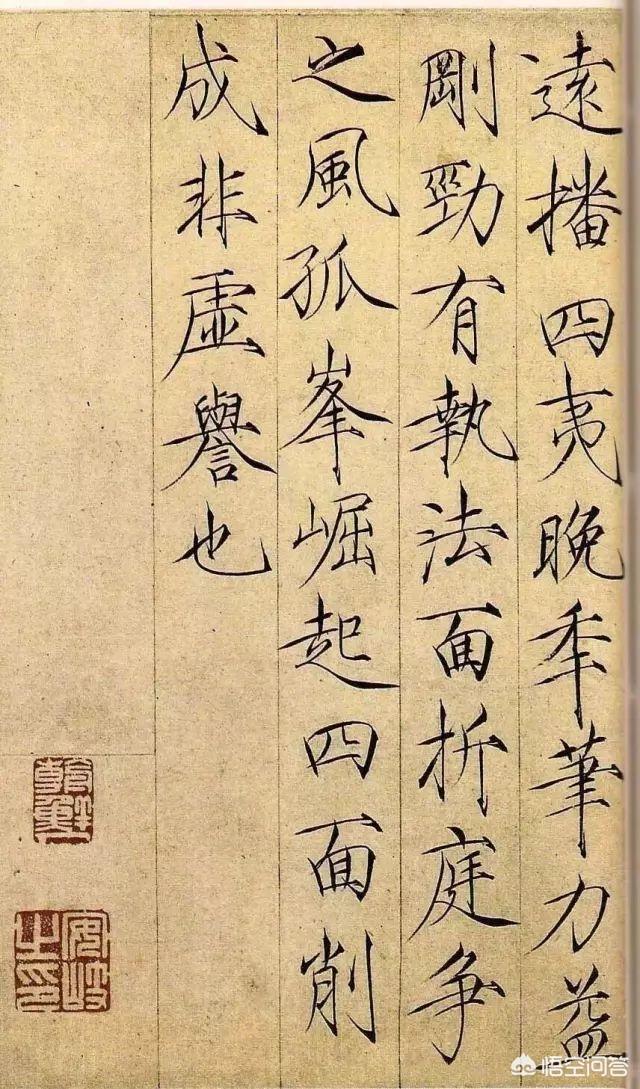 遠播四夷晚秊筆力益
剛勁有執法面折庭爭
之風孤峯崛起四面削
成非虛譽也
安岐之印
悟空问答